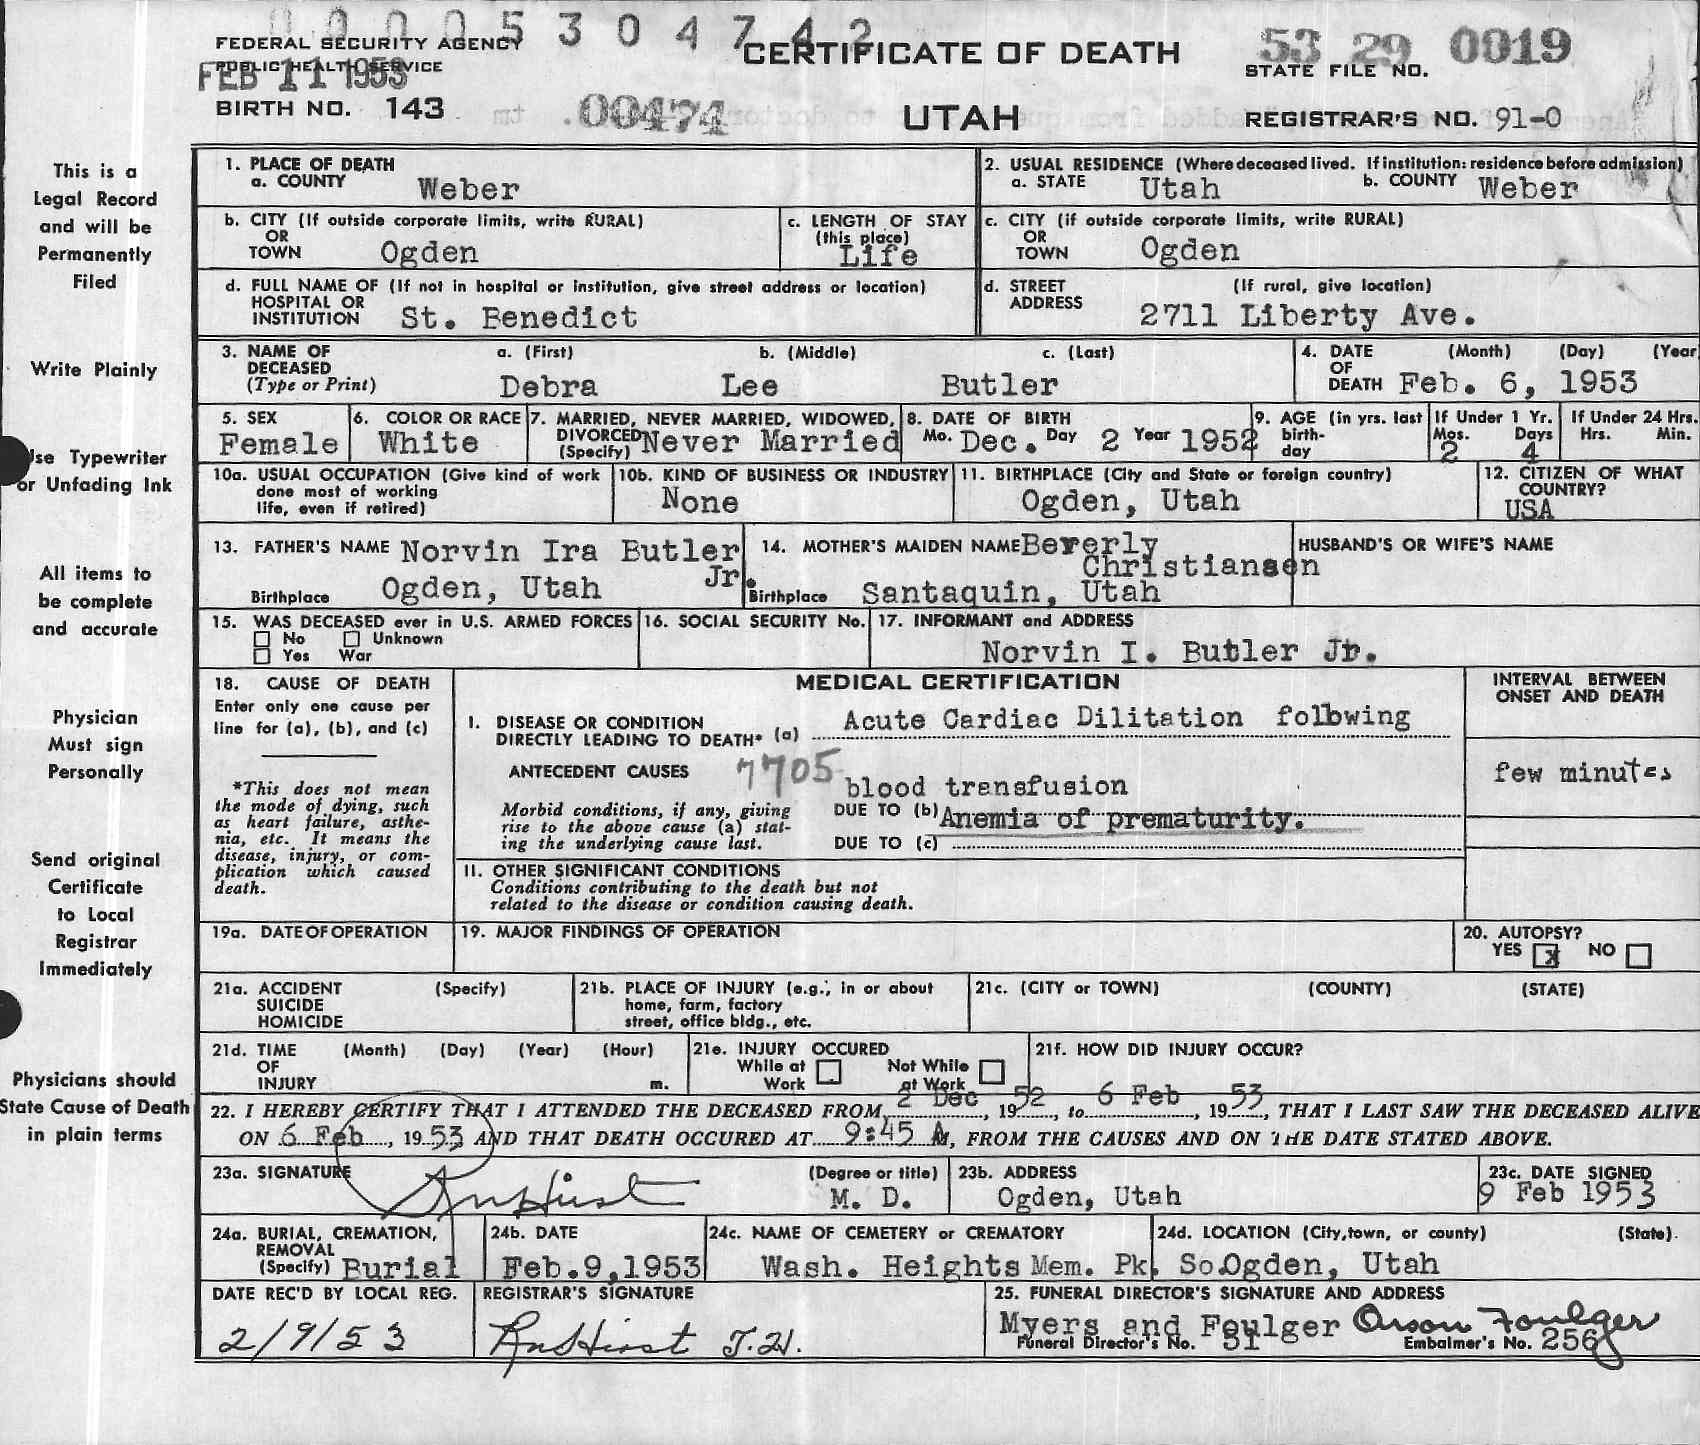 0000530474 2
FEDERAL SECURITY AGENCY
PUBLIC HEALTH SERVICE
FEB 11 1953
BIRTH NO. 143
.00474
CERTIFICATE OF DEATH
UTAH
53 29 0019
STATE FILE NO.
REGISTRAR'S NO. 91-0
This is a
Legal Record
and will be
Permanently
Filed
Write Plainly
Use Typewriter
or Unfading Ink
All items to
be complete
and accurate
Physician
Must sign
Personally
Send original
Certificate
to Local
Registrar
Immediately
Physicians should
State Cause of Death
in plain terms
1. PLACE OF DEATH
a. COUNTY Weber
2. USUAL RESIDENCE (Where deceased lived. If institution: residence before admission)
a. STATE Utah b. COUNTY Weber
b. CITY (If outside corporate limits, write RURAL)
OR
TOWN Ogden
c. LENGTH OF STAY
(this place)
Life
c. CITY (if outside corporate limits, write RURAL)
OR
TOWN Ogden
d. FULL NAME OF (If not in hospital or institution, give street address or location)
HOSPITAL OR
INSTITUTION St. Benedict
d. STREET (If rural, give location)
ADDRESS
2711 Liberty Ave.
3. NAME OF a. (First) b. (Middle) c. (Last)
DECEASED
(Type or Print) Debra Lee Butler
4. DATE (Month) (Day) (Year
OF
DEATH Feb. 6, 1953
5. SEX
Female
6. COLOR OR RACE
White
7. MARRIED, NEVER MARRIED, WIDOWED,
DIVORCED Never Married
(Specify)
8. DATE OF BIRTH
Mo. Dec. Day 2 Year 1952
9. AGE (in yrs. last
birth-
day
If Under 1 Yr.
Mos. Days
2 4
If Under 24 Hrs.
Hrs. Min.
10a. USUAL OCCUPATION (Give kind of work
done most of working
life, even if retired)
10b. KIND OF BUSINESS OR INDUSTRY
None
11. BIRTHPLACE (City and State or foreign country)
Ogden, Utah
12. CITIZEN OF WHAT
COUNTRY?
USA
13. FATHER'S NAME Norvin Ira Butler
Jr.
Birthplace Ogden, Utah
14. MOTHER'S MAIDEN NAME Beverly
Christiansen
Birthplace Santaquin, Utah
HUSBAND'S OR WIFE'S NAME
15. WAS DECEASED ever in U.S. ARMED FORCES
No Unknown
Yes War
16. SOCIAL SECURITY No.
17. INFORMANT and ADDRESS
Norvin I. Butler Jr.
18. CAUSE OF DEATH
Enter only one cause per
line for (a), (b), and (c)
*This does not mean
the mode of dying, such
as heart failure, asthe-
nia, etc. It means the
disease, injury, or com-
plication which caused
death.
MEDICAL CERTIFICATION
I. DISEASE OR CONDITION
DIRECTLY LEADING TO DEATH* (a) Acute Cardiac Dilitation folbwing
ANTECEDENT CAUSES 7705 blood transfusion
Morbid conditions, if any, giving
rise to the above cause (a) stat-
ing the underlying cause last.
DUE TO (b) Anemia of prematurity.
DUE TO (c)
II. OTHER SIGNIFICANT CONDITIONS
Conditions contributing to the death but not
related to the disease or condition causing death.
INTERVAL BETWEEN
ONSET AND DEATH
few minutes
19a. DATE OF OPERATION
19. MAJOR FINDINGS OF OPERATION
20. AUTOPSY?
YES x NO
21a. ACCIDENT (Specify)
SUICIDE
HOMICIDE
21b. PLACE OF INJURY (e.g., in or about
home, farm, factory
street, office bldg., etc.
21c. (CITY or TOWN) (COUNTY) (STATE)
21d. TIME (Month) (Day) (Year) (Hour)
OF
INJURY m.
21e. INJURY OCCURED
While at Not While
Work at Work
21f. HOW DID INJURY OCCUR?
22. I HEREBY CERTIFY THAT I ATTENDED THE DECEASED FROM 2 Dec, 1952, to 6 Feb, 1953, THAT I LAST SAW THE DECEASED ALIVE
ON 6 Feb, 1953 AND THAT DEATH OCCURED AT 9:45 A m, FROM THE CAUSES AND ON THE DATE STATED ABOVE.
23a. SIGNATURE (Degree or title)
M. D.
23b. ADDRESS
Ogden, Utah
23c. DATE SIGNED
9 Feb 1953
24a. BURIAL, CREMATION,
REMOVAL
(Specify) Burial
24b. DATE
Feb.9,1953
24c. NAME OF CEMETERY or CREMATORY
Wash. Heights Mem. Pk.
24d. LOCATION (City, town, or county) (State).
So.Ogden, Utah
DATE REC'D BY LOCAL REG.
2/9/53
REGISTRAR'S SIGNATURE
25. FUNERAL DIRECTOR'S SIGNATURE AND ADDRESS
Myers and Foulger Orson Foulger
Funeral Director's No. 51 Embalmer's No. 256